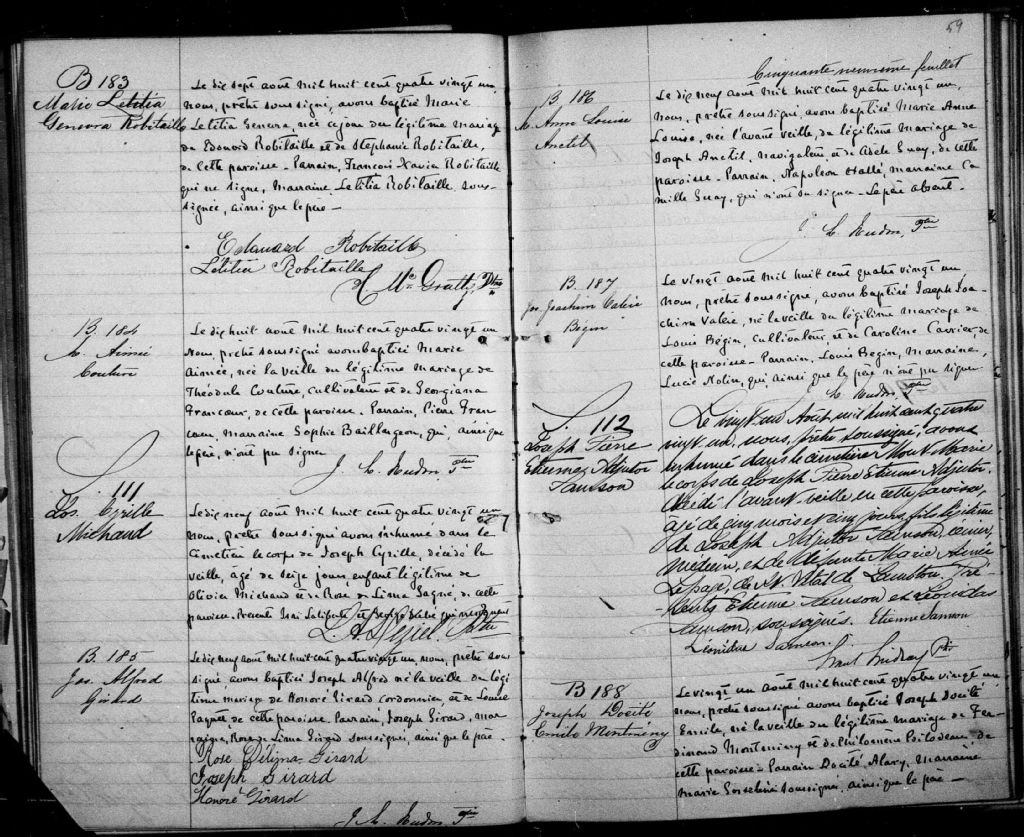 B 183
Marie Letitia
Genevra Robitaille
Le dix sept aout mil huit cent quatre vingt un,
nous, prêtre soussigné, avons baptisé Marie
Letitia Genevra née ce jour du légitime mariage
de Edouard Robitaille et de Stéphanie Robitaille,
de cette paroisse. Parrain, François Xavier Robitaille
qui ne signe, Marraine Letitia Robitaille sous-
signée, ainsi que le père —
Edouard Robitaille
Létitia Robitaille
B. 184
M. Aimée
Couture
Le dix huit aout mil huit cent quatre vingt un
nous, prêtre soussigné avons baptisé Marie
Aimée, née la veille du légitime mariage de
Théodule Couture, cultivateur et de Georgiana
Francoeur, de cette paroisse. Parrain, Pierre Fran
coeur, marraine Sophie Baillargeon, qui, ainsi que
le père, n'ont pu signer
S. 111
Jos. Cyrille
Michaud
Le dix neuf aout mil huit cent quatre vingt un
nous, prêtre soussigné avons inhumé dans le
cimetière le corps de Joseph Cyrille, décédé la
veille, âgé de seize jours, enfant légitime de
Olivier Michaud et de Rose de Lima Gagné, de cette
paroisse. Présents
B. 185
Jos. Alfred
Girard
Le dix neuf aout mil huit cent quatre vingt un, nous, prêtre sous
signé, avons baptisé Joseph Alfred né la veille du légi
time mariage de Honoré Girard cordonnier, et de Louise
Paquet, de cette paroisse. Parrain, Joseph Girard, mar
raine, Rose de Lima Girard soussignés, ainsi que le père.
Rose Délima Girard
Joseph Girard
Honoré Girard
59
Cinquante neuvième feuillet
B. 186
M. Anne Louise
Anctil
Le dix neuf aout mil huit cent quatre vingt un,
nous, prêtre soussigné, avons baptisé Marie Anne
Louise, née l'avant veille, du légitime mariage de
Joseph Anctil, navigateur et de Adèle Guay, de cette
paroisse. Parrain, Napoleon Hallé, marraine Ca
mille Guay, qui n'ont su signer. Le père absent.
B. 187
Jos. Joachim Valère
Bégin
Le vingt aout mil huit cent quatre vingt un
nous, prêtre soussigné, avons baptisé Joseph Joa-
chim Valère, né la veille du légitime mariage de
Louis Bégin, cultivateur, et de Caroline Carrier, de
cette paroisse. Parrain, Louis Bégin, Marraine,
Lucie Nolin, qui ainsi que le père n'ont pu signer
S. 112
Joseph Pierre
Etienne Adjutor
Samson
Le vingt un Aout mil huit cent quatre
vingt un, nous, prêtre soussigné, avons
inhumé dans le cimetière Mont Marie
le corps de Joseph Pierre Etienne Adjutor,
décédé l'avant veille en cette paroisse,
âgé de cinq mois et cinq jours, fils légitime
de Joseph Adjutor Samson, écuier,
médecin, et de défunte Marie Aimée
Lepage, de St. Vital de Lambton. Pré-
sents Etienne Samson et Léonidas
Samson, soussignés. Etienne Samson
Léonidas Samson.
B 188
Joseph Docité
Emile Montminy
Le vingt un aout mil huit cent quatre vingt un
nous, prêtre soussigné avons baptisé Joseph Docité
Emile, né la veille du légitime mariage de Fer
dinand Montminy et de Philomène Bilodeau, de
cette paroisse. Parrain Docité Alary, Marraine
Marie Gosselin soussignés, ainsi que le père —